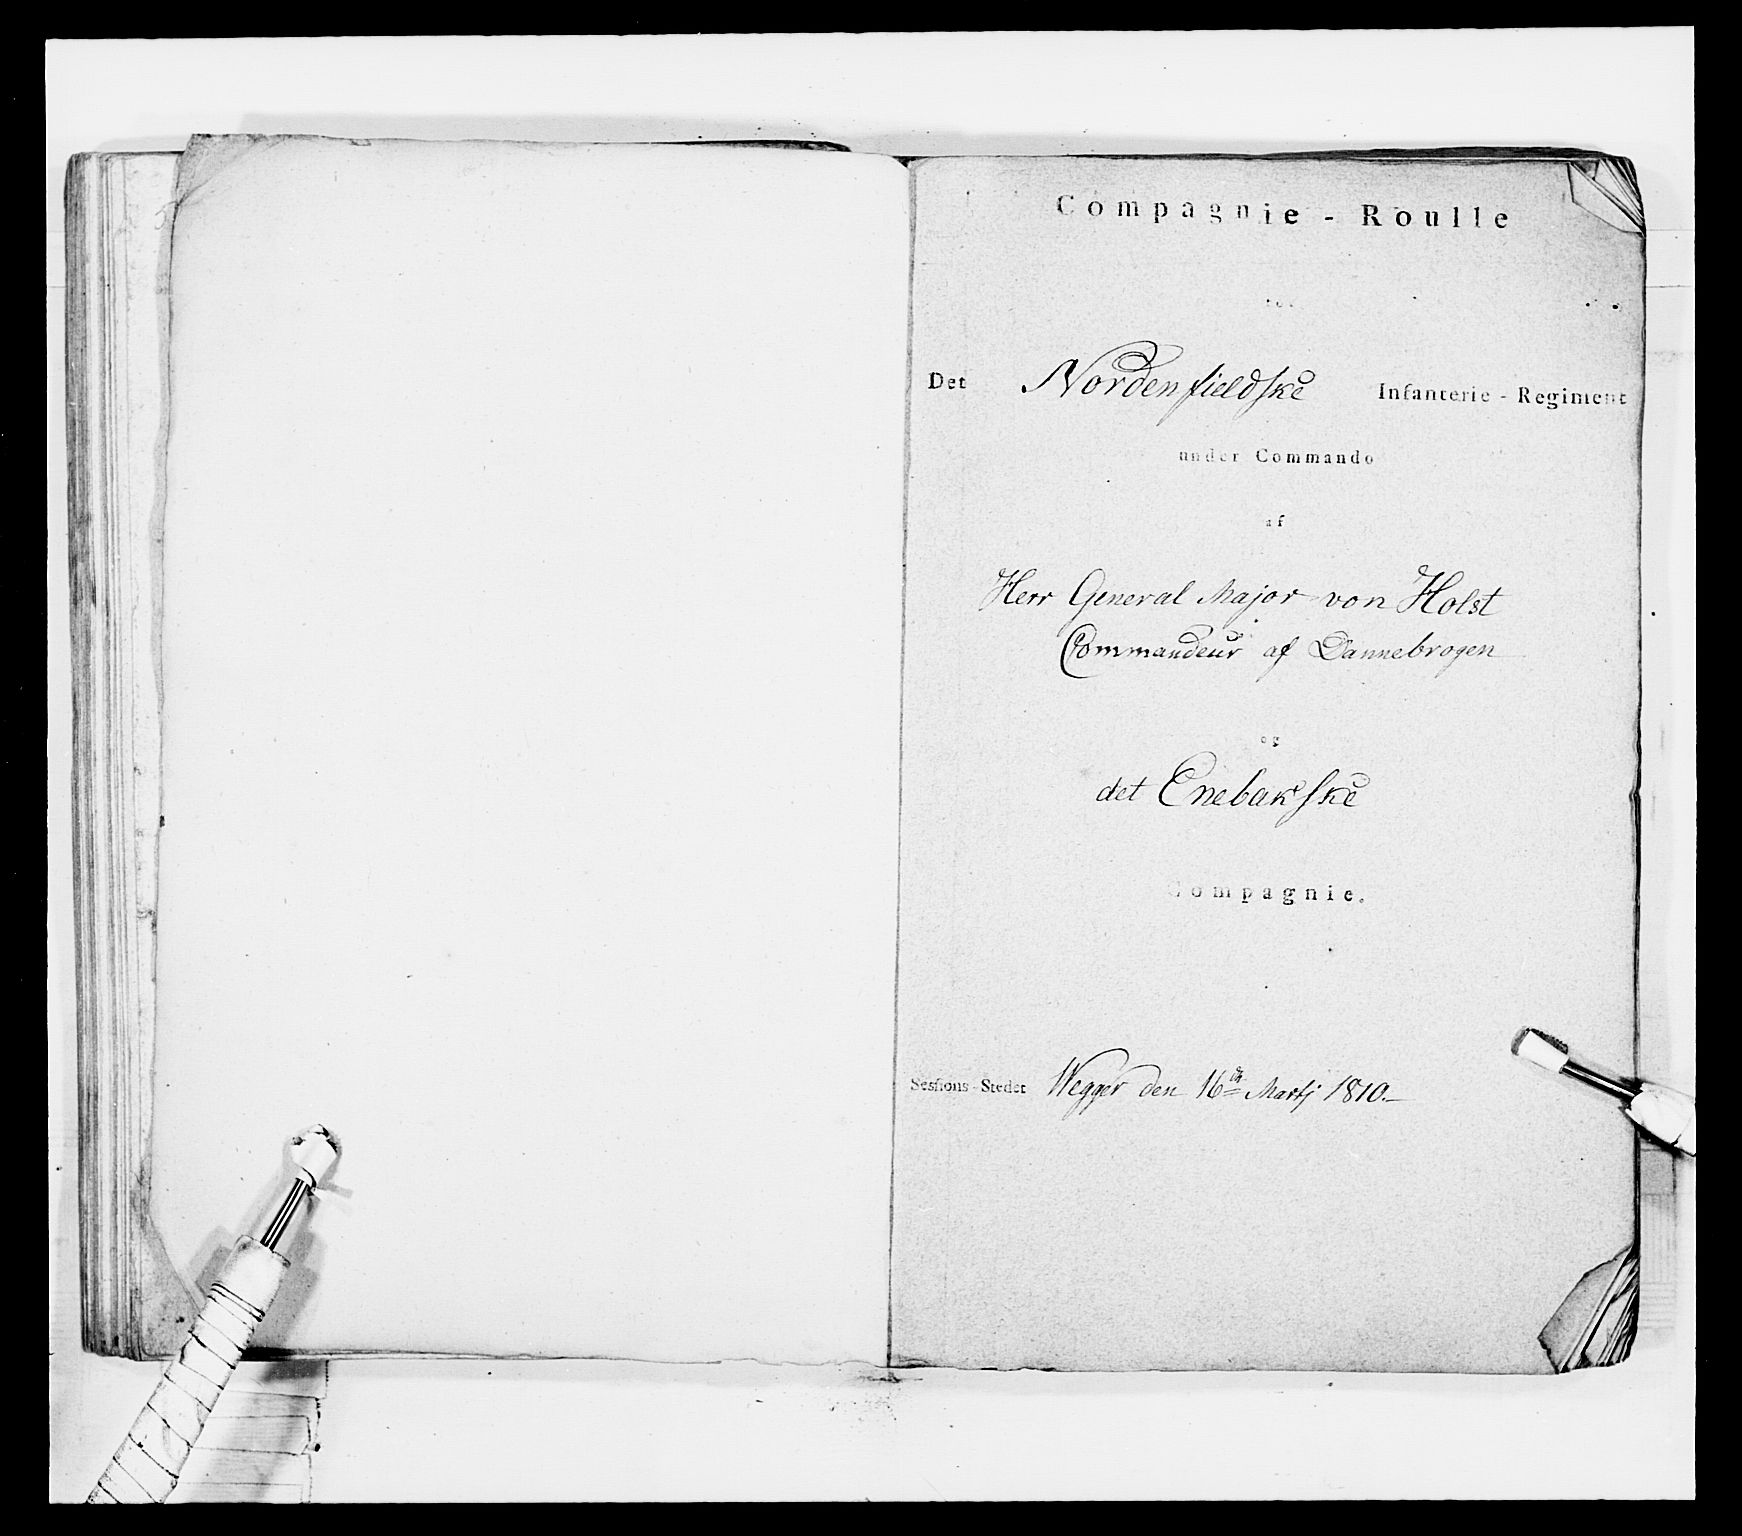 Compagnie - Roulle
Det Nordenfieldske Infanterie - Regiment
under Commando
af
Herr General Major von Holst
Commandeur af Dannebrogen
og
det Enebakske
Compagnie.
Sesſions-Stedet Wegger den 16de Martj 1810.-